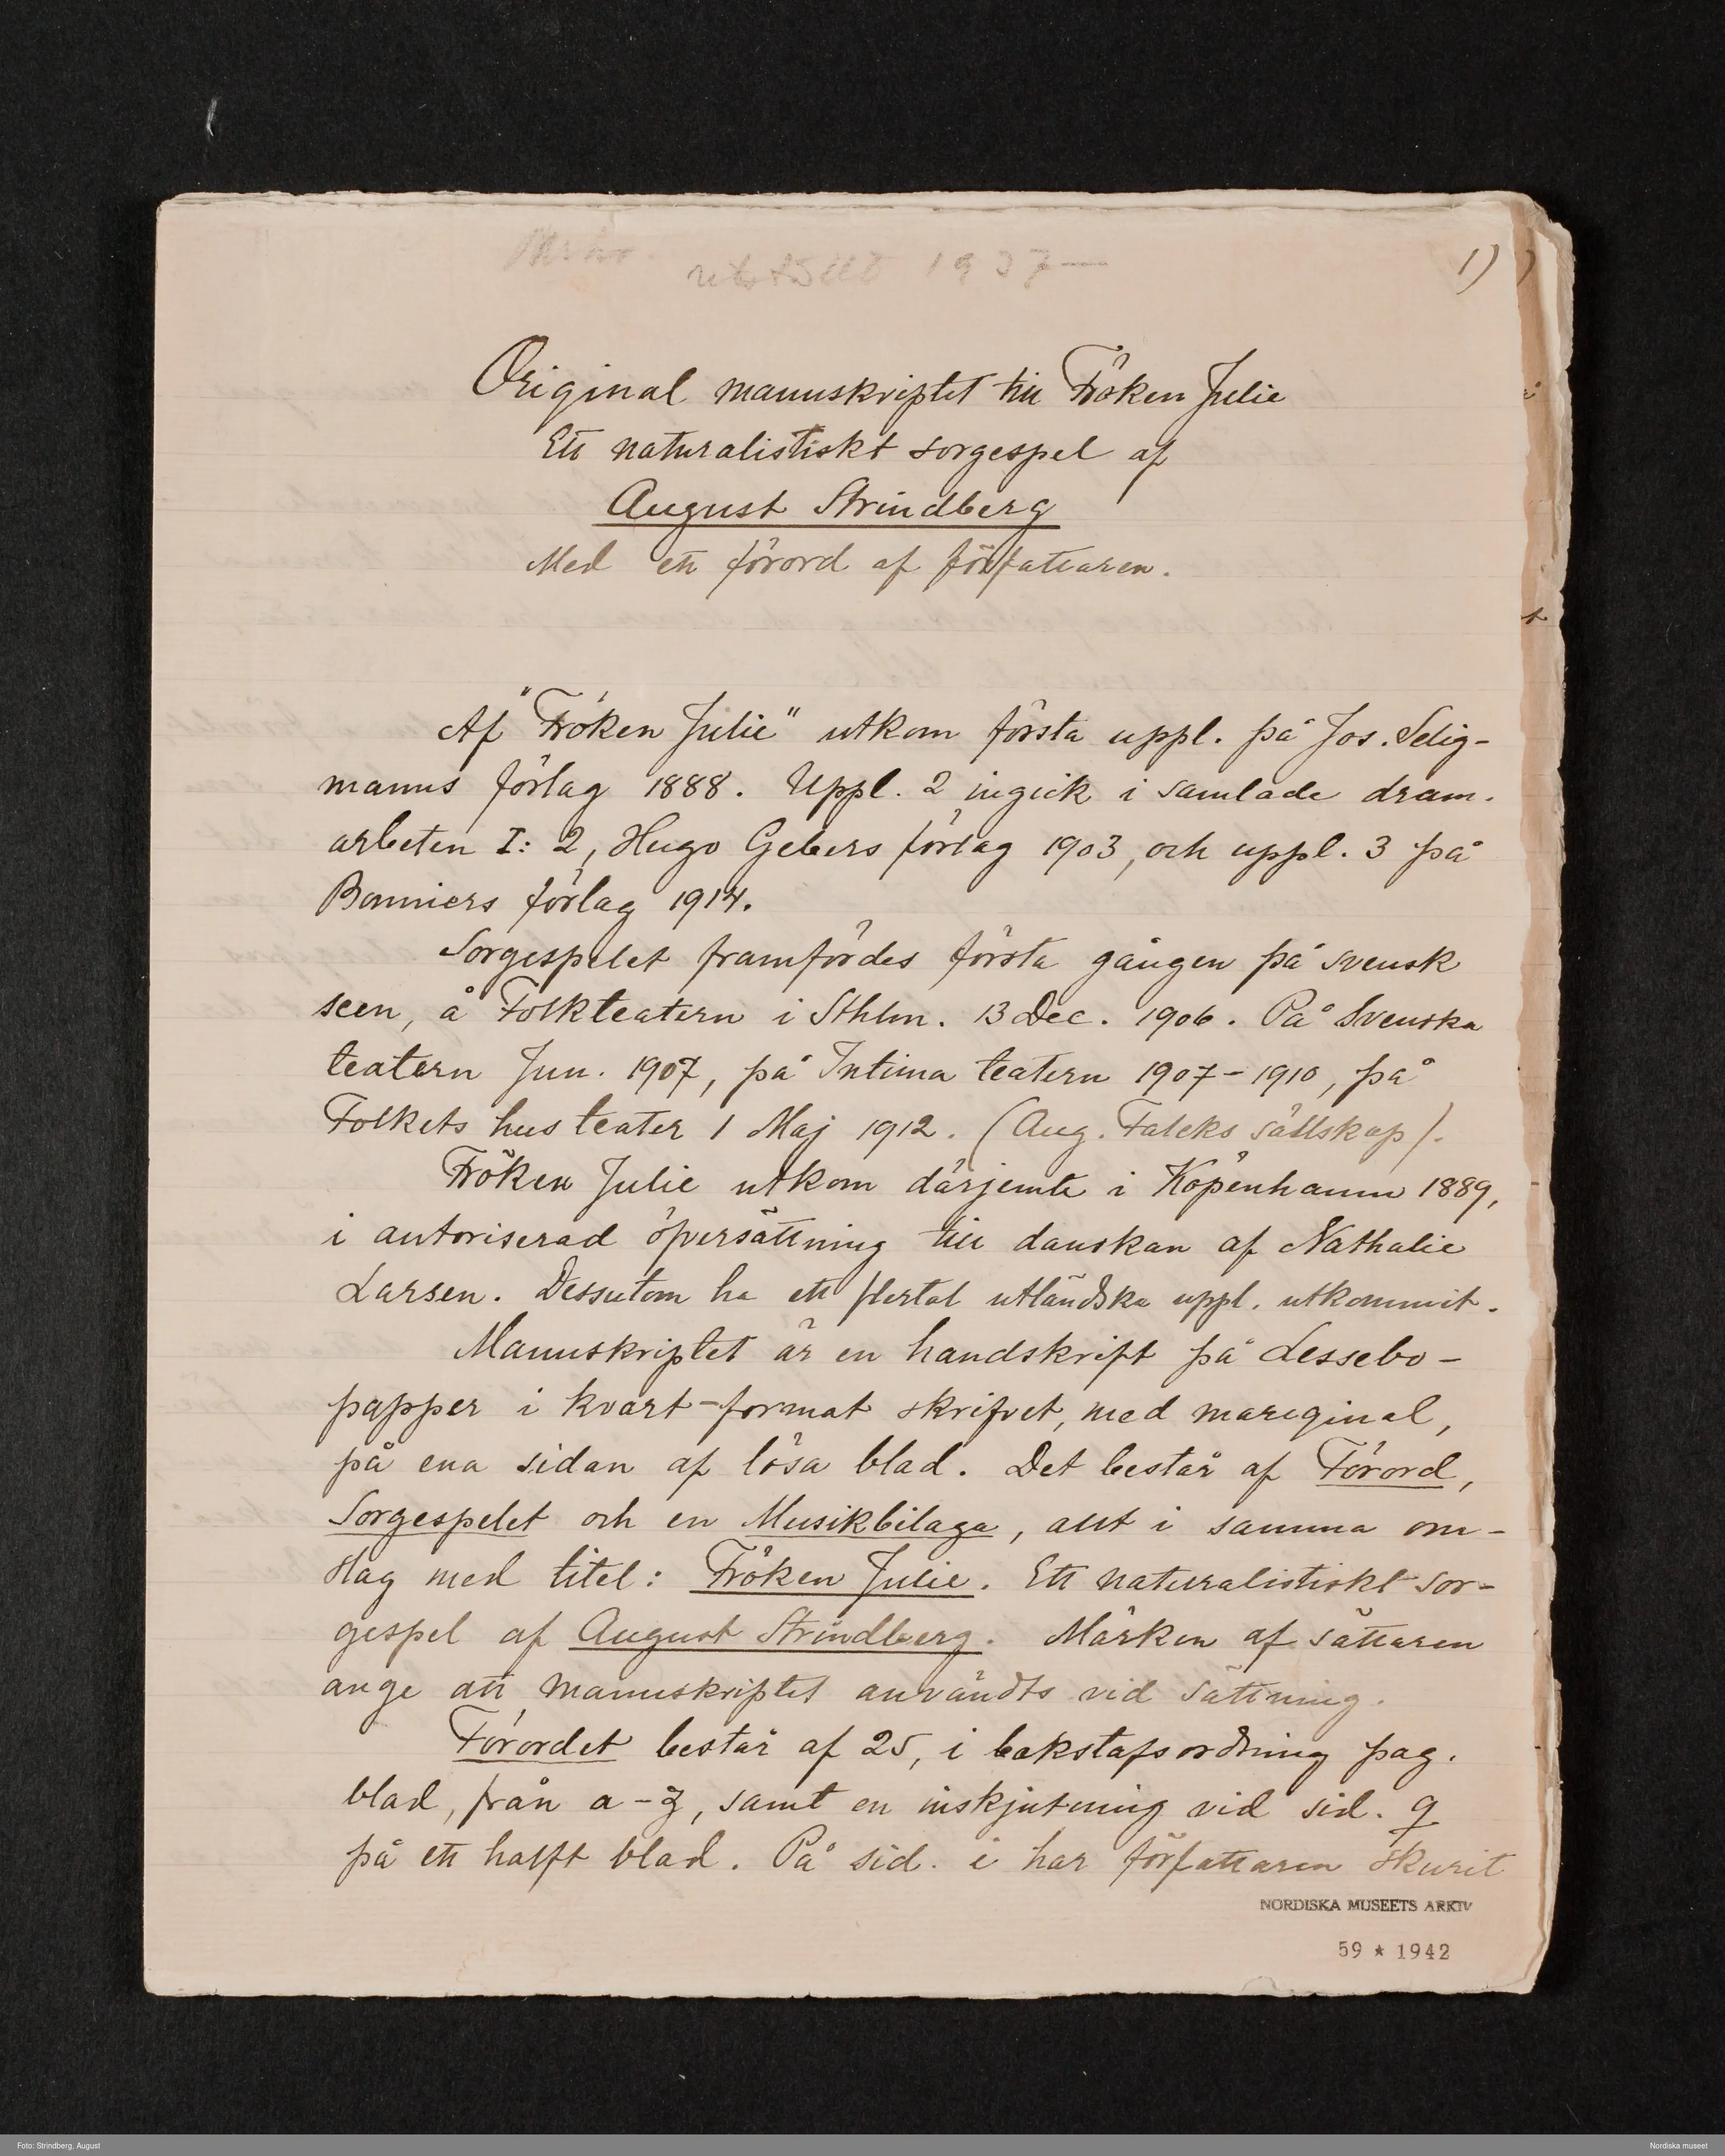 1)
1937—
Original manuskriptet till Fröken Julie
Ett naturalistiskt sorgespel af
August Strindberg
Med ett förord af författaren.
Af "Fröken Julie" utkom första uppl. på Jos. Selig-
manns förlag 1888. Uppl. 2 ingick i samlade dram.
arbeten I: 2, Hugo Gebers förlag 1903, och uppl. 3 på
Bonniers förlag 1914.
Sorgespelet framfördes första gången på svensk
scen, å Folkteatern i Sthlm. 13 Dec. 1906. På Svenska
teatern Jun. 1907, på Intima teatern 1907-1910, på
Folkets hus teater 1 Maj 1912. (Aug. Falcks sällskap).
Fröken Julie utkom därjemte i Köpenhamn 1889,
i autoriserad öfversättning till danskan af Nathalie
Larsen. Dessutom ha ett flertal utländska uppl. utkommit.
Manuskriptet är en handskrift på Lessebo-
papper i kvart-format skrifvet, med mareginal,
på ena sidan af lösa blad. Det består af Förord,
Sorgespelet och en Musikbilaga, allt i samma om-
slag med titel: Fröken Julie. Ett naturalistiskt sor-
gespel af August Strindberg. Märken af sättaren
ange att manuskriptet användts vid sättning.
Förordet består af 25, i bokstafsordning pag.
blad, från a-z, samt en inskjutning vid sid. q
på ett halft blad. På sid. i har författaren skurit
NORDISKA MUSEETS ARKIV
59 * 1942
Foto: Strindberg, August
Nordiska museet